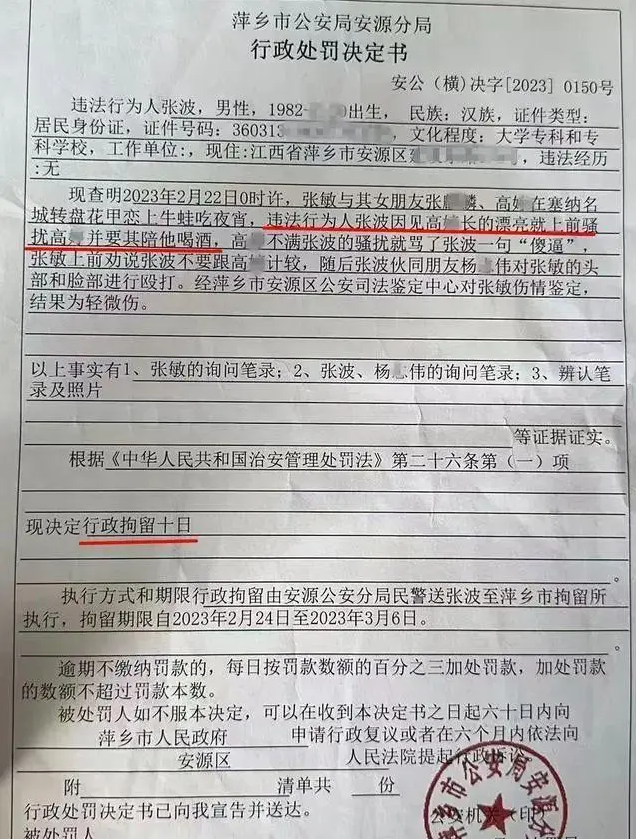 萍乡市公安局安源分局
行政处罚决定书
安公（横）决字[2023] 0150号
违法行为人张波，男性，1982- 出生，民族：汉族，证件类型：
居民身份证，证件号码：360313 ，文化程度：大学专科和专
科学校，工作单位:，现住:江西省萍乡市安源区 ，违法经历
:无
现查明2023年2月22日0时许，张敏与其女朋友张 麟、高 在塞纳名
城转盘花甲恋上牛蛙吃夜宵，违法行为人张波因见高 长的漂亮就上前骚
扰高 并要其陪他喝酒，高 不满张波的骚扰就骂了张波一句“傻逼”，
张敏上前劝说张波不要跟高 计较，随后张波伙同朋友杨 伟对张敏的头
部和脸部进行殴打。经萍乡市安源区公安司法鉴定中心对张敏伤情鉴定，
结果为轻微伤。
以上事实有1、张敏的询问笔录；2、张波、杨 伟的询问笔录；3、辨认笔
录及照片
等证据证实。
根据《中华人民共和国治安管理处罚法》第二十六条第（一）项
现决定行政拘留十日
。
执行方式和期限行政拘留由安源公安分局民警送张波至萍乡市拘留所
执行，拘留期限自2023年2月24日至2023年3月6日。
。
逾期不缴纳罚款的，每日按罚款数额的百分之三加处罚款，加处罚款
的数额不超过罚款本数。
被处罚人如不服本决定，可以在收到本决定书之日起六十日内向
萍乡市人民政府 申请行政复议或者在六个月内依法向
安源区 人民法院提起行政诉讼
附 清单共 份
行政处罚决定书已向我宣告并送达。 公安机关（印）
被处罚人
乡市公安局安源分